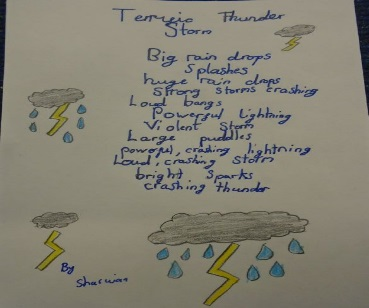 Terrific Thunder
Storm
Big rain drops
Splashes
huge rain drops
Strong storms crashing
Loud bangs
Powerful lightning
Violent Storm
Large puddles
powerful, crashing lightning
Loud, crashing storm
bright sparks
crashing thunder
By